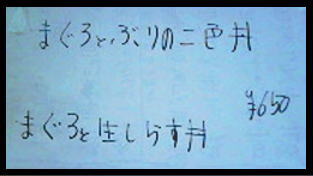 まぐろとぶりの二色丼
¥650
まぐろと生しらす丼